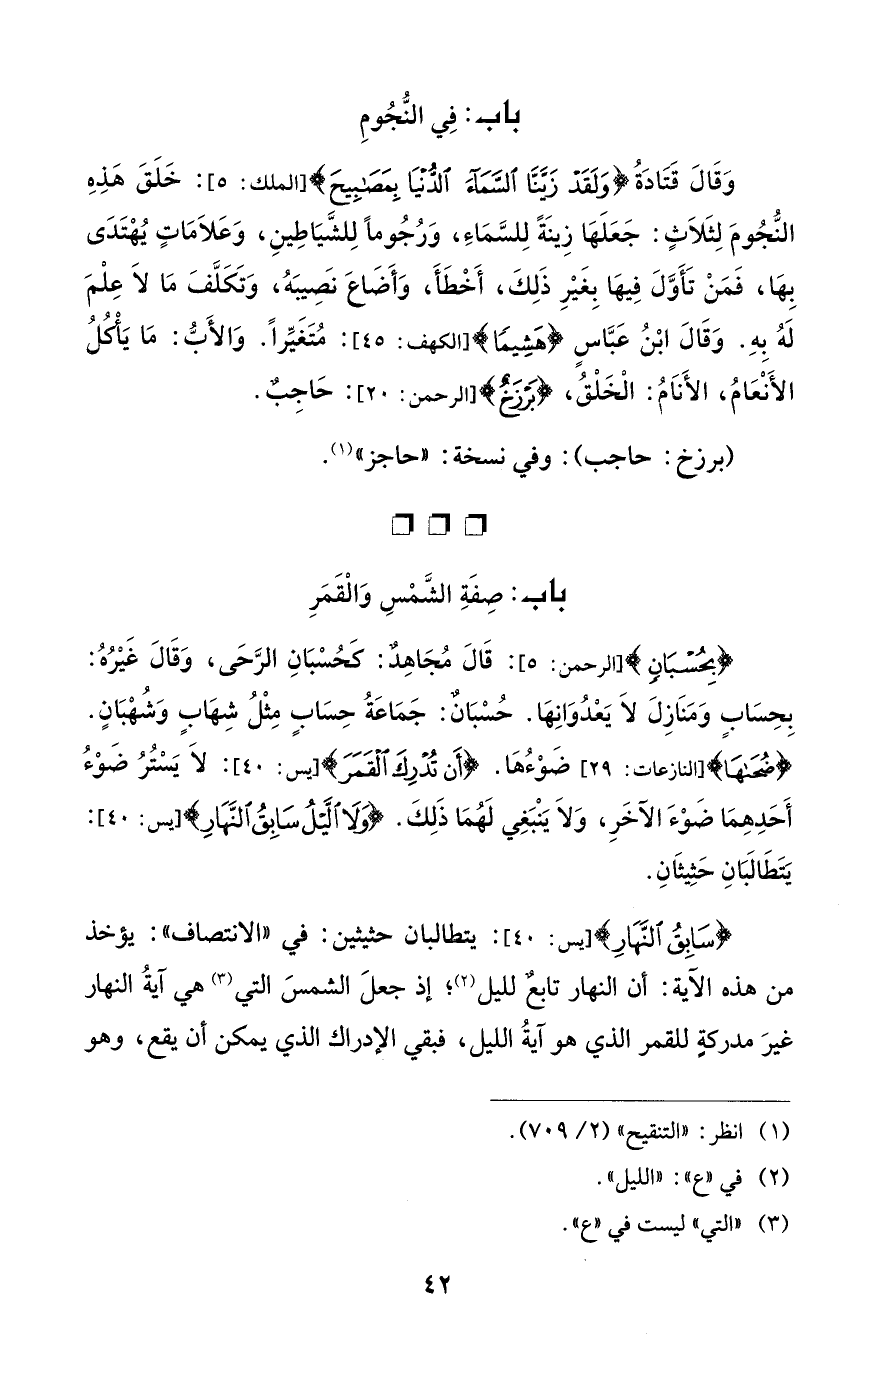 باب: فِي النُّجُومِ
وَقَالَ قَتَادَةُ ﴿وَلَقَدْ زَيَّنَّا ٱلسَّمَآءَ ٱلدُّنْيَا بِمَصَٰبِيحَ﴾[الملك: ٥]: خَلَقَ هَذِهِ
النُّجُومَ لِثَلاَثٍ: جَعَلَهَا زِينَةً لِلسَّمَاءِ، وَرُجُوماً لِلشَّيَاطِينِ، وَعَلاَمَاتٍ يُهْتَدَى
بِهَا، فَمَنْ تَأَوَّلَ فِيهَا بِغَيْرِ ذَلِكَ، أَخْطَأَ، وَأَضَاعَ نَصِيبَهُ، وَتَكَلَّفَ مَا لاَ عِلْمَ
لَهُ بِهِ. وَقَالَ ابْنُ عَبَّاسٍ ﴿هَشِيمًا﴾[الكهف: ٤٥]: مُتَغَيِّراً. وَالأَبُّ: مَا يَأْكُلُ
الأَنْعَامُ، الأَنَامُ: الْخَلْقُ، ﴿بَرْزَخٌ﴾[الرحمن: ٢٠]: حَاجِبٌ.
(برزخ: حاجب): وفي نسخة: «حاجز»(١).
باب: صِفَةِ الشَّمْسِ وَالْقَمَرِ
﴿بِحُسْبَانٍ﴾[الرحمن: ٥]: قَالَ مُجَاهِدٌ: كَحُسْبَانِ الرَّحَى، وَقَالَ غَيْرُهُ:
بِحِسَابٍ وَمَنَازِلَ لاَ يَعْدُوَانِهَا. حُسْبَانٌ: جَمَاعَةُ حِسَابٍ مِثْلُ شِهَابٍ وَشُهْبَانٍ.
﴿ضُحَىٰهَا﴾[النازعات: ٢٩] ضَوْءُهَا. ﴿أَن تُدْرِكَ ٱلْقَمَرَ﴾[يس: ٤٠]: لاَ يَسْتُرُ ضَوْءُ
أَحَدِهِمَا ضَوْءَ الآخَرِ، وَلاَ يَنْبَغِي لَهُمَا ذَلِكَ. ﴿وَلَا ٱلَّيْلُ سَابِقُ ٱلنَّهَارِ﴾[يس: ٤٠]:
يَتَطَالَبَانِ حَثِيثَانِ.
﴿سَابِقُ ٱلنَّهَارِ﴾[يس: ٤٠]: يتطالبان حثيثين: في «الانتصاف»: يؤخذ
من هذه الآية: أن النهار تابعٌ لليل(٢)؛ إذ جعلَ الشمسَ التي(٣) هي آيةُ النهار
غيرَ مدركةٍ للقمر الذي هو آيةُ الليل، فبقي الإدراك الذي يمكن أن يقع، وهو
(١) انظر: «التنقيح» (٢/ ٧٠٩).
(٢) في «ع»: «الليل».
(٣) «التي» ليست في «ع».
٤٢